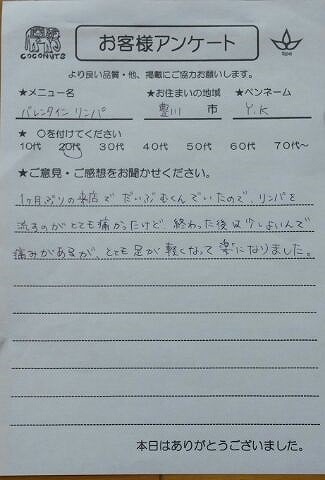 COCONUTS
お客様アンケート
spa
より良い品質・他、掲載にご協力お願いします。
★メニュー名 ★お住まいの地域 ★ペンネーム
バレンタイン リンパ 豊川 市 Y.K
★ ○を付けてください
10代 20代 30代 40代 50代 60代 70代〜
★ご意見・ご感想をお聞かせください。
1ヶ月ぶりの来店で だいぶむくんでいたので、リンパを
流すのがとても痛かったけど 終わった後は少し
痛みがあるが、とても足が軽くなって 楽になりました。
本日はありがとうございました。